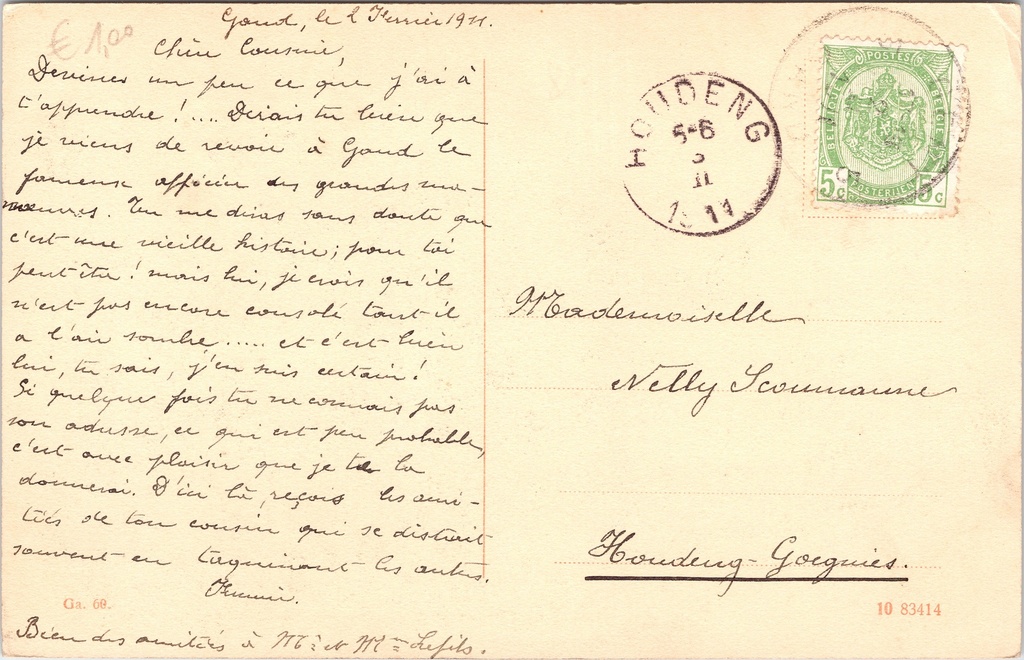 € 1,00
Gand, le 2 Février 1911.
Chère Cousine,
Devines un peu ce que j'ai à
t'apprendre ! .... Dirais tu bien que
je viens de revoir à Gand le
fameux officier des grandes ma-
nœuvres. Tu me diras sans doute que
c'est une vieille histoire; pour toi
peut-être ! mais lui, je crois qu'il
n'est pas encore consolé tant il
a l'air sombre ..... et c'est bien
lui, tu sais, j'en suis certain !
Si quelque fois tu ne connais pas
son adresse, ce qui est peu probable,
c'est avec plaisir que je te la
donnerai. D'ici là, reçois les ami-
tiés de ton cousin qui se distrait
souvent en taquinant les autres.
Firmin.
Bien des amitiés à Mr et Mme Lefils.
Ga. 60.
HOUDENG
5-6
3
II
1911
POSTES
BELGIQUE
BELGIË
POSTERIJEN
5c 5c
Mademoiselle
Nelly Scoumanne
Houdeng-Goegnies.
10 83414